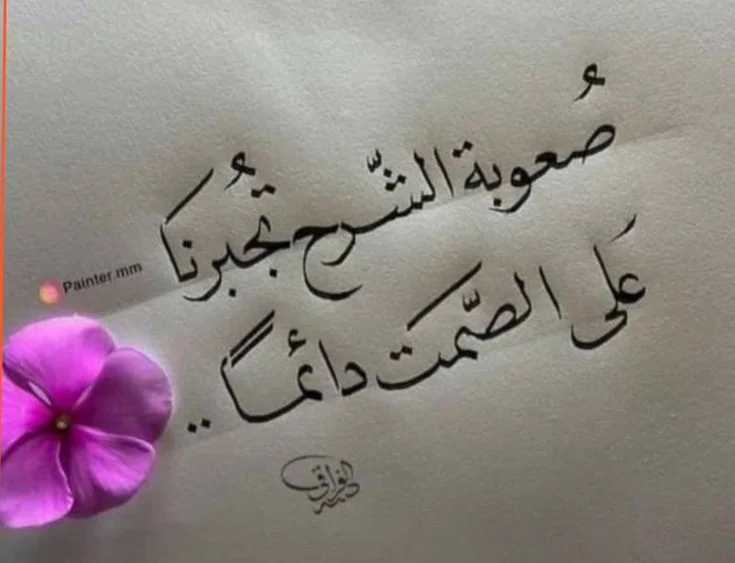 صُعوبة الشّرح تُجبرنا
عَلى الصّمت دائماً ..
Painter.mm